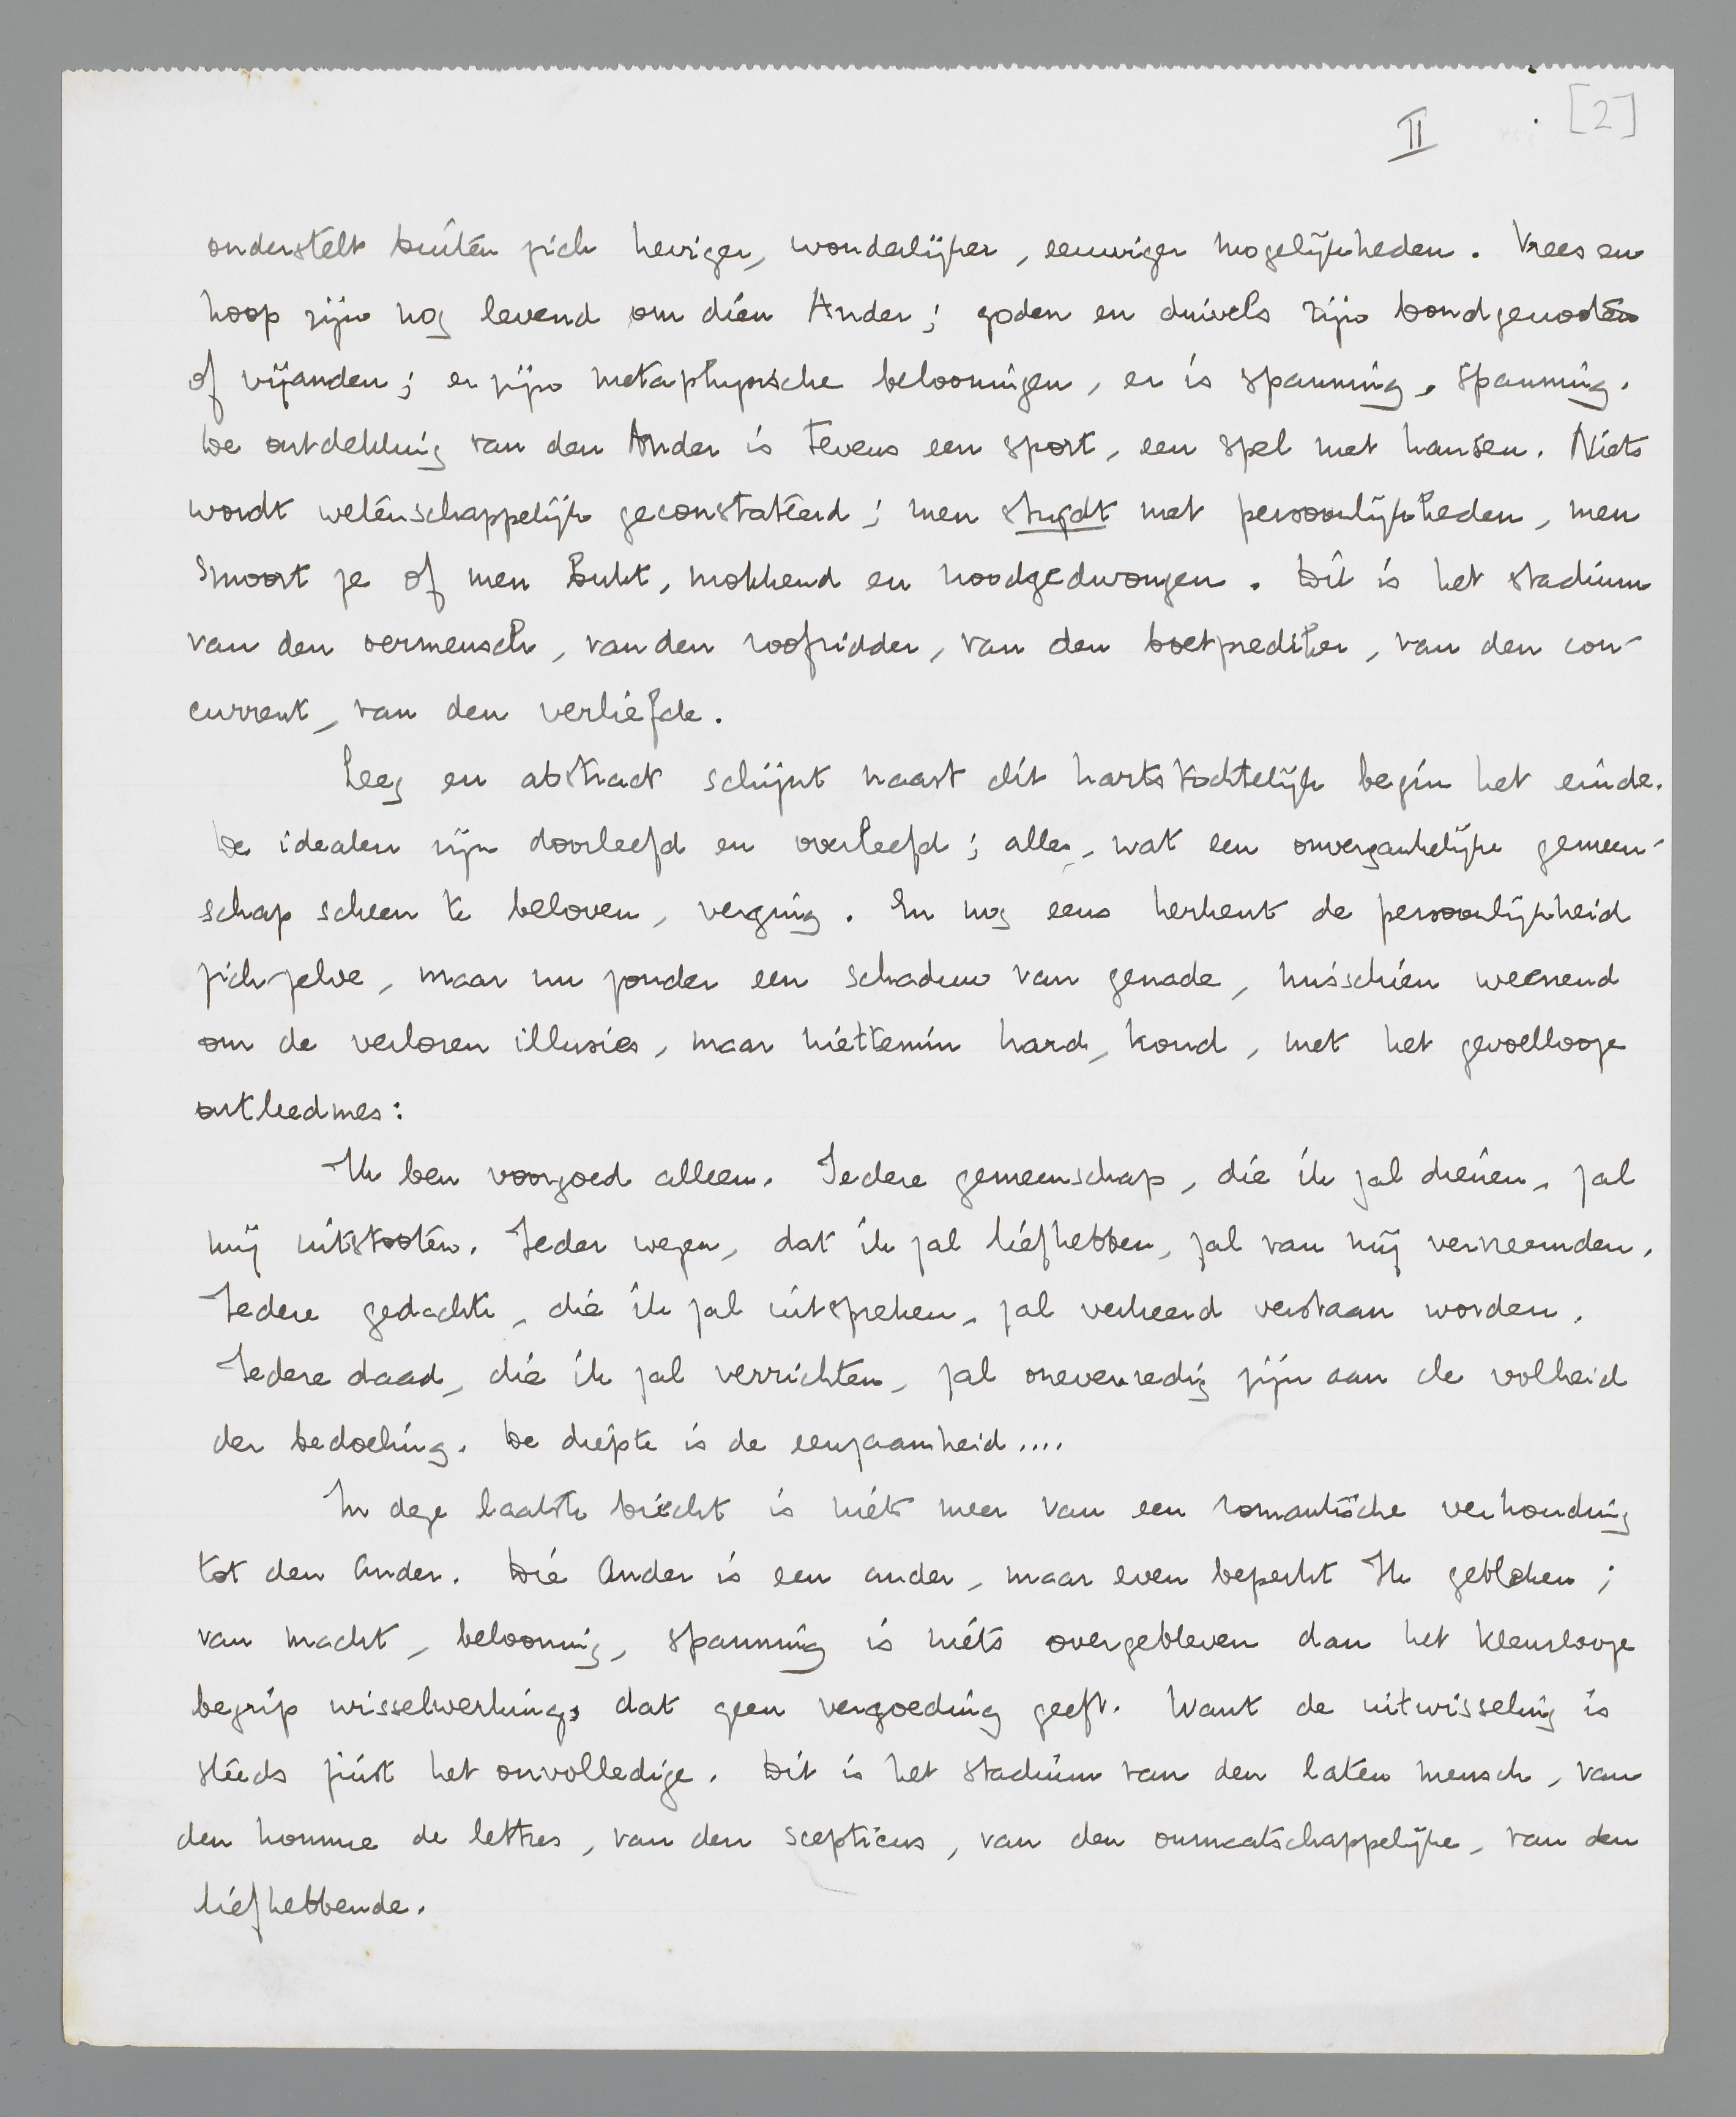 II
[2]
onderstelt buiten zich heviger, wonderlijker, eeuwiger mogelijkheden. Vrees en
hoop zijn nog levend om dien Ander; goden en duivels zijn bondgenooten
of vijanden; er zijn metaphysische belooningen, er is spanning, spanning.
De ontdekking van den Ander is tevens een sport, een spel met kansen. Niets
wordt wetenschappelijk geconstateerd; men strijdt met persoonlijkheden, men
smoort ze of men bukt, mokkend en noodgedwongen. Dit is het stadium
van den oermensch, van den roofridder, van den boetprediker, van den con-
current, van den verliefde.
Leeg en abstract schijnt naast dit hartstochtelijk begin het einde.
De idealen zijn doorleefd en overleefd; alles, wat een onvergankelijke gemeen-
schap scheen te beloven, verging. En nog eens herkent de persoonlijkheid
zich zelve, maar nu zonder een schaduw van genade, misschien weenend
om de verloren illusies, maar niettemin hard, koud, met het gevoellooze
ontleedmes:
Ik ben voorgoed alleen. Iedere gemeenschap, die ik zal dienen, zal
mij uitstooten. Ieder wezen, dat ik zal liefhebben, zal van mij vervreemden.
Iedere gedachte, die ik zal uitspreken, zal verkeerd verstaan worden.
Iedere daad, die ik zal verrichten, zal onevenredig zijn aan de volheid
der bedoeling. De diepte is de eenzaamheid....
In deze laatste biecht is niets meer van een romantische verhouding
tot den Ander. Die Ander is een ander, maar even beperkt Ik gebleken;
van macht, belooning, spanning is niets overgebleven dan het kleurlooze
begrip wisselwerking, dat geen vergoeding geeft. Want de uitwisseling is
steeds juist het onvolledige. Dit is het stadium van den laten mensch, van
den homme de lettres, van den scepticus, van den onmaatschappelijke, van den
liefhebbende.